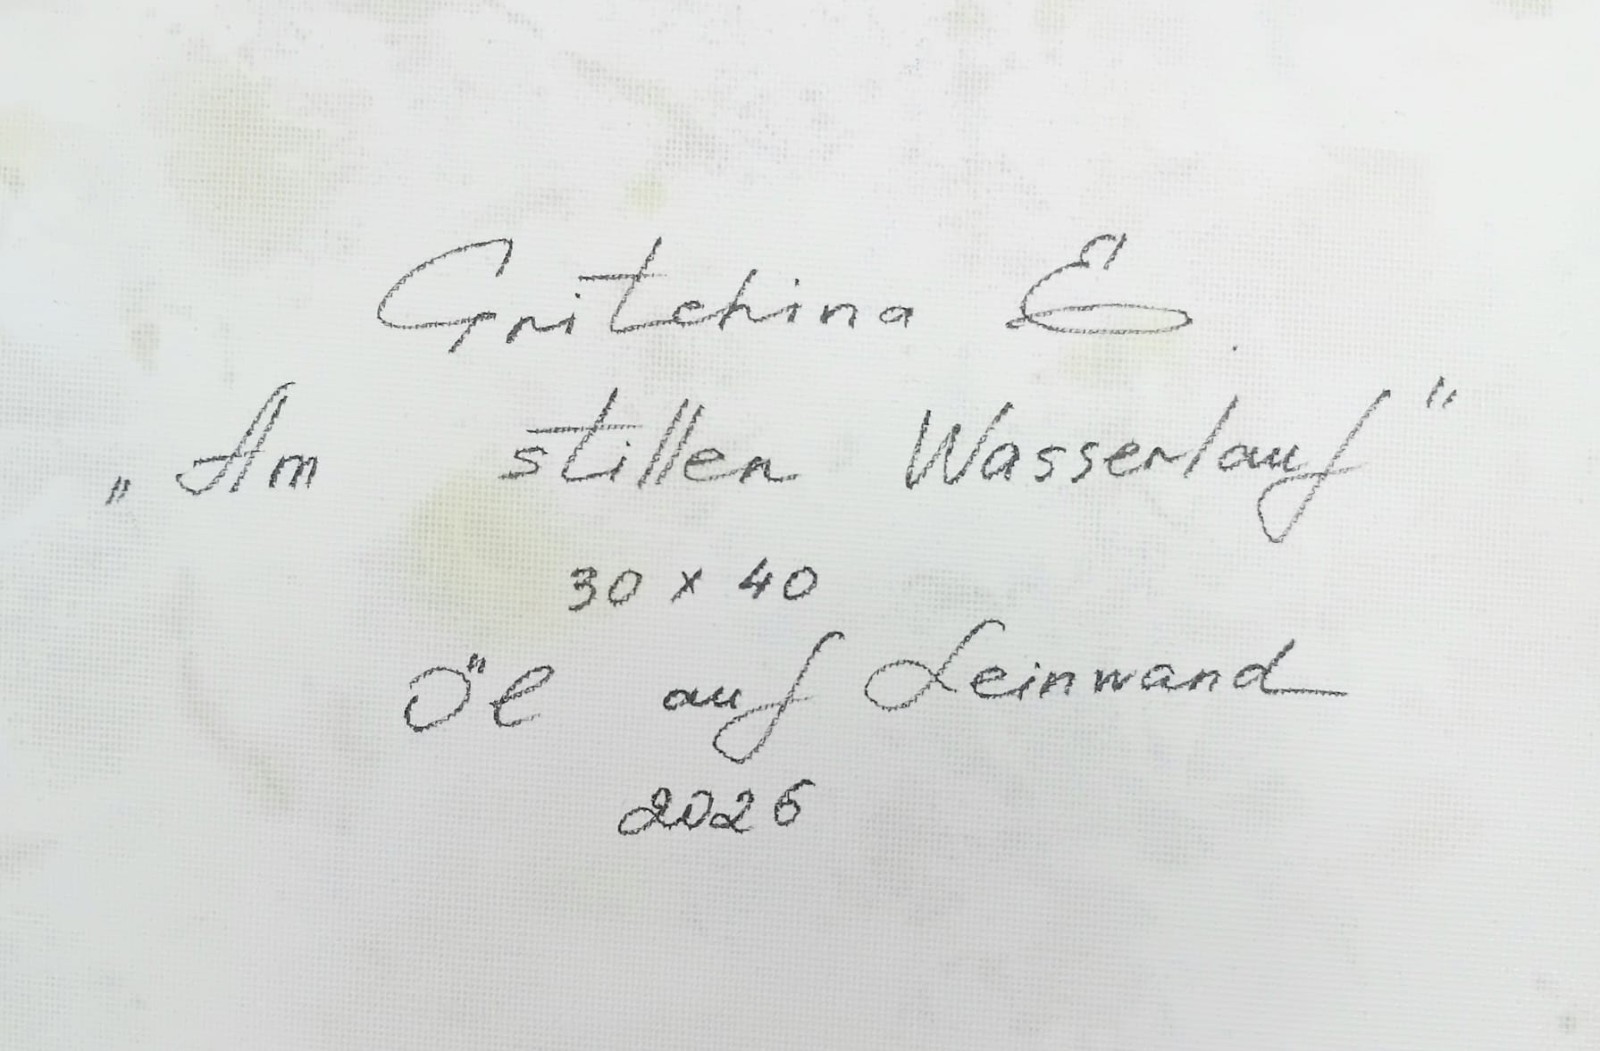 Gritchina E.
„Am stillen Wasserlauf"
30 x 40
Öl auf Leinwand
2026